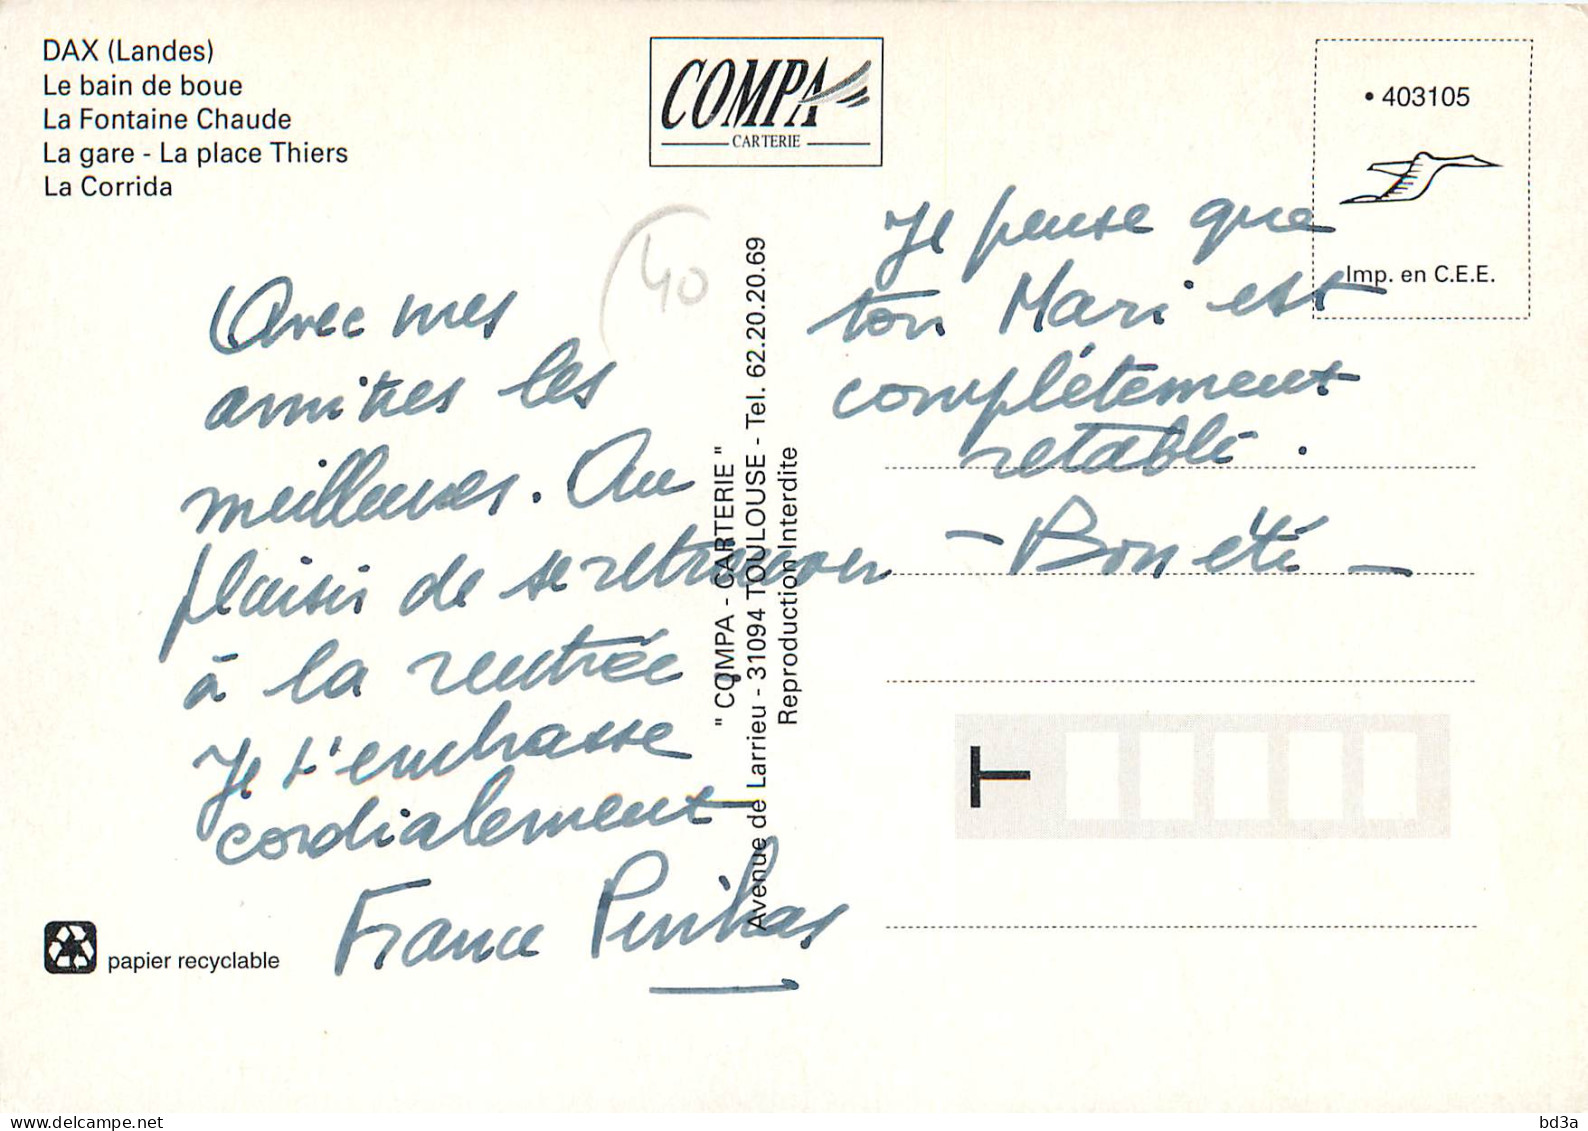 DAX (Landes)
Le bain de boue
La Fontaine Chaude
La gare - La place Thiers
La Corrida
COMPA
CARTERIE
• 403105
Imp. en C.E.E.
40
Avec mes
amitiés les
meilleures. Au
plaisir de se retrouver
à la rentrée
Je t'embrasse
cordialement
France
" COMPA - CARTERIE "
Avenue de Larrieu - 31094 TOULOUSE - Tel. 62.20.20.69
Reproduction Interdite
Je pense que
ton Mari est
complétement
retabli.
- Bon été -
T
papier recyclable
delcampe.net
bd3a